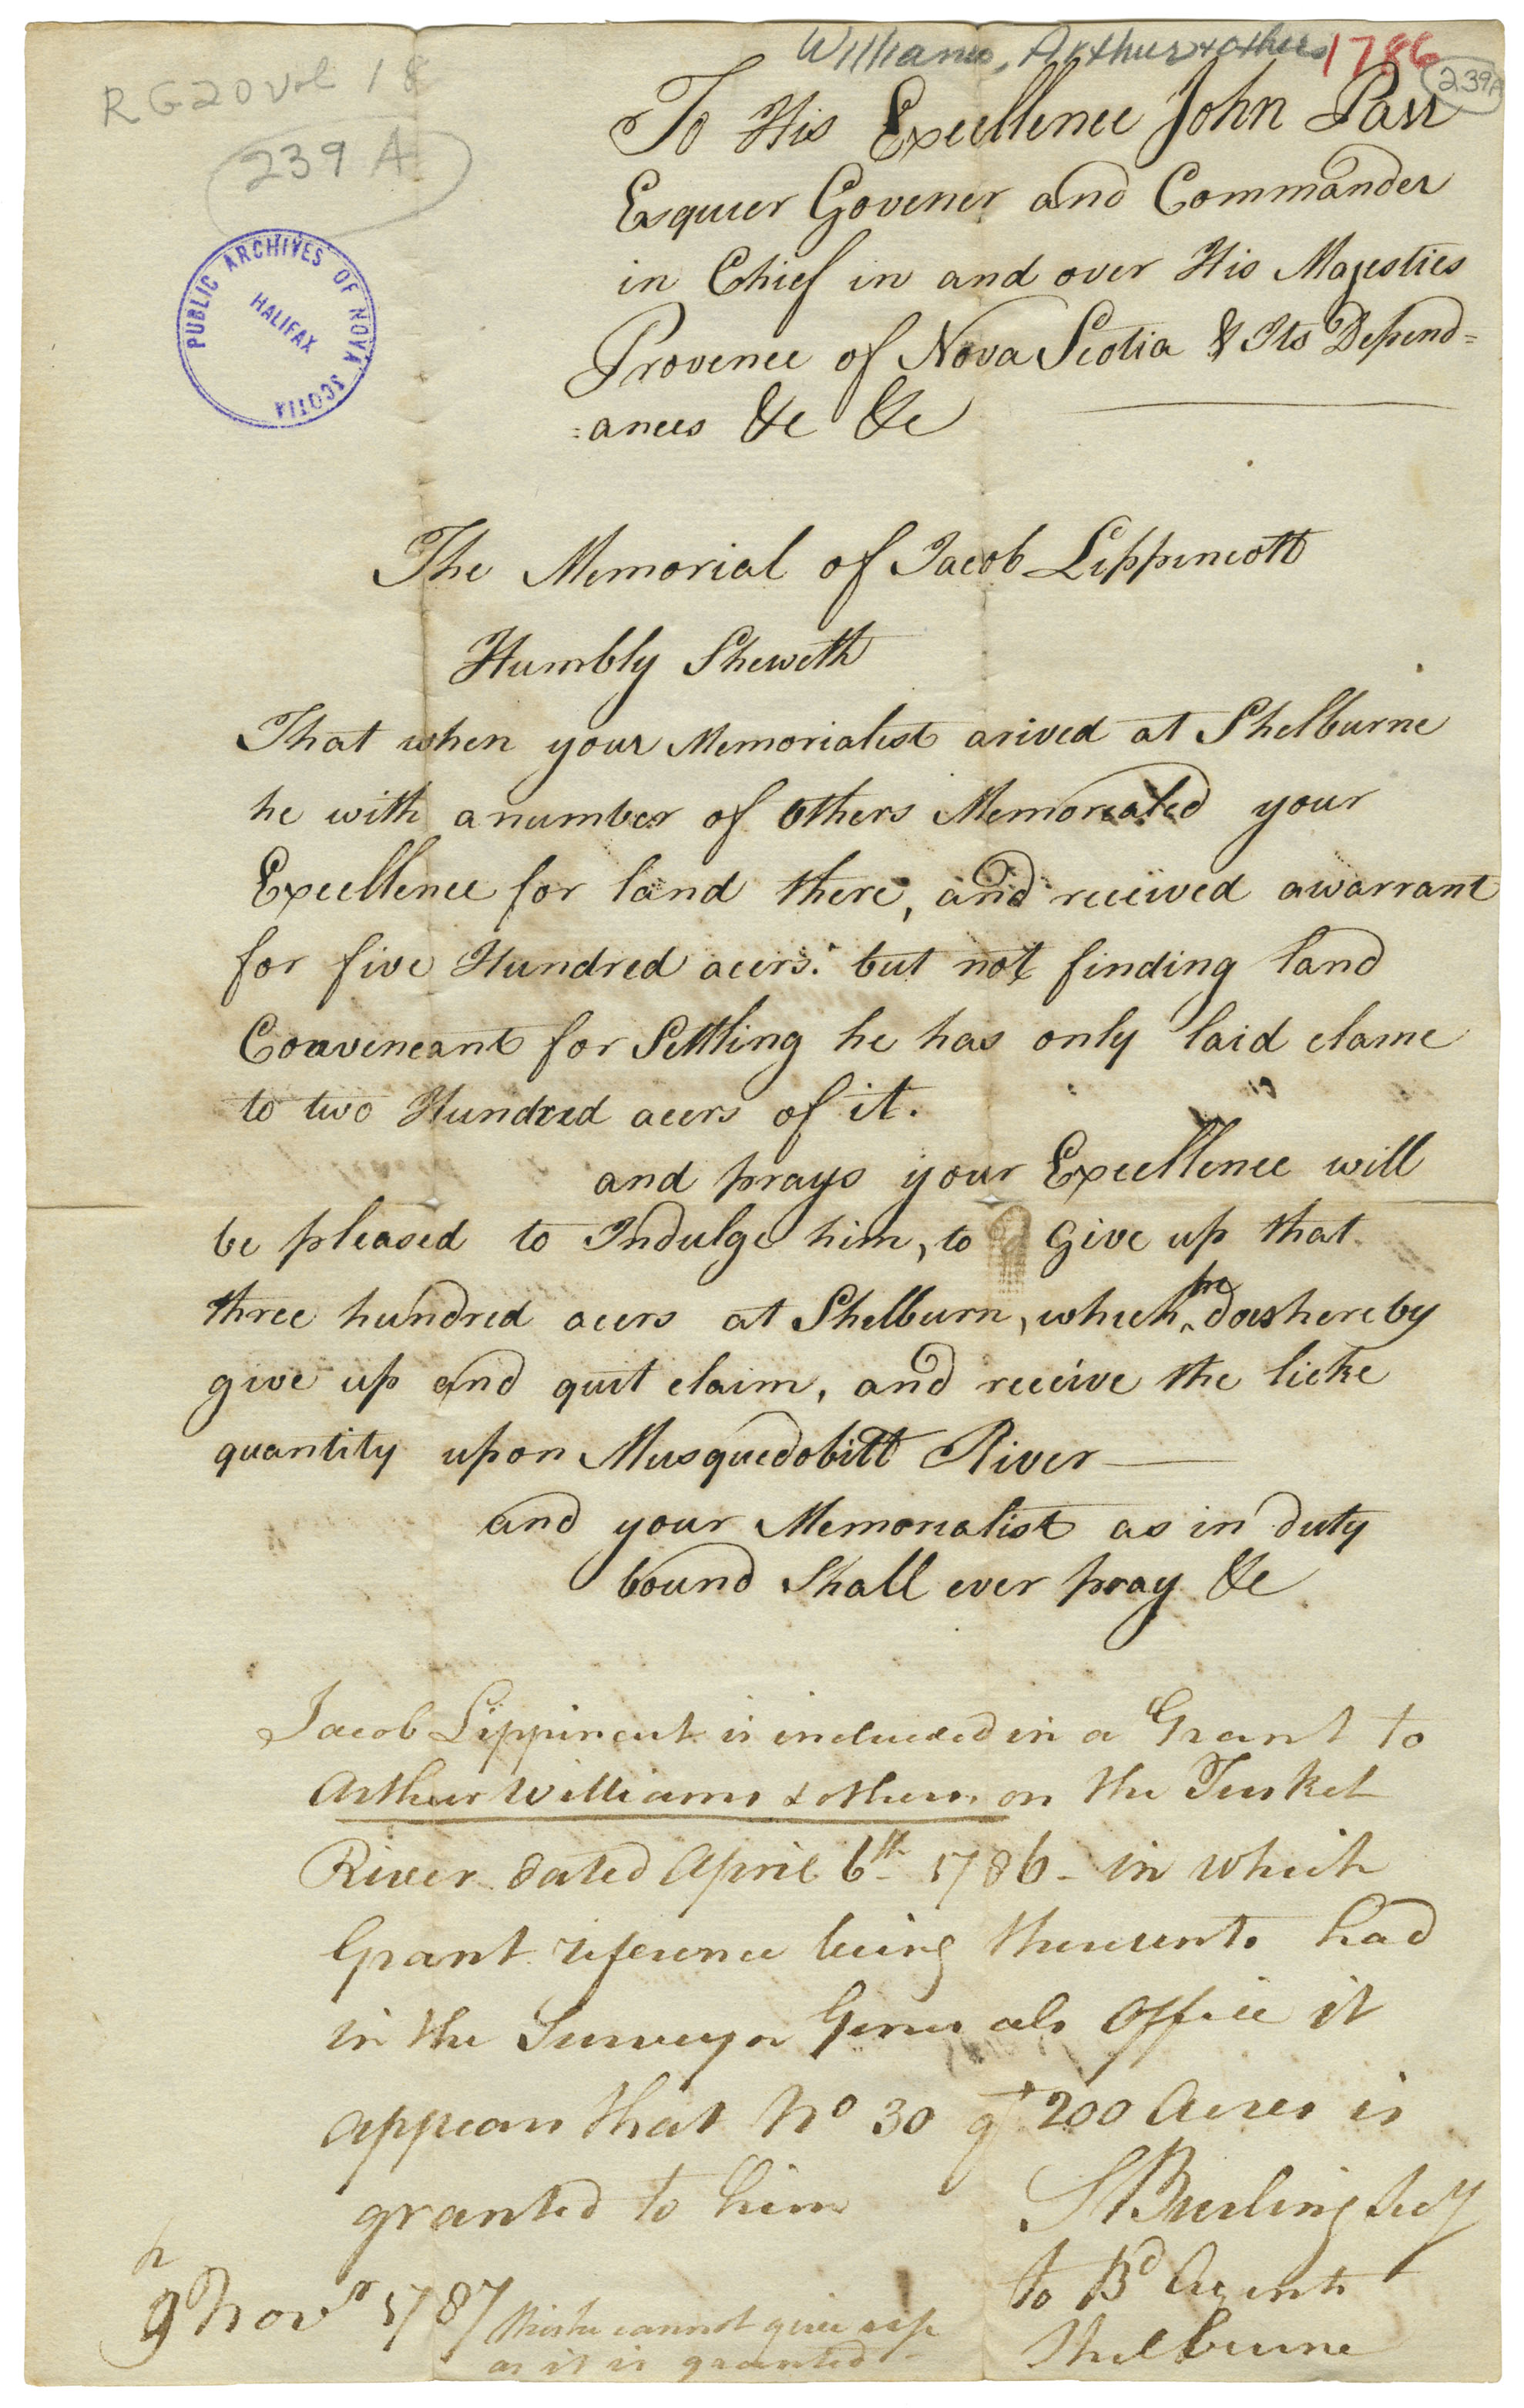 Williams, Arthur & others 1786
239A
RG20 Vol 18
239 A
PUBLIC ARCHIVES OF NOVA SCOTIA
HALIFAX
To His Excellence John Parr
Esquier Govener and Commander
in Chief in and over His Majesties
Provence of Nova Scotia & Its Depend=
=ances &c &c
The Memorial of Jacob Lippincott
Humbly Sheweth
That when your Memorialest arived at Shelburne
he with a number of others Memorealed your
Excellence for land there, and received a warrant
for five Hundred acers. but not finding land
Conveneant for Settling he has only laid clame
to two Hundred acers of it.
and prays your Excellence will
be pleased to Indulge him, to Give up that
three hundred acers at Shelburn, which he does hereby
give up and quit claim, and receive the licke
quantity upon Musquedobitt River
and your Memorialist as in duty
bound Shall ever pray &c
Jacob Lippincut is included in a Grant to
Arthur Williams & others on the Tusket
River dated April 6th 1786 - in which
Grant reference being thereunto had
in the Surveyor Generals Office it
appears that No 30 of 200 Acres is
granted to him
S Burling Secy
to Bd Agents
Shelburne
9th Novr 1787
this he cannot give up
as it is granted